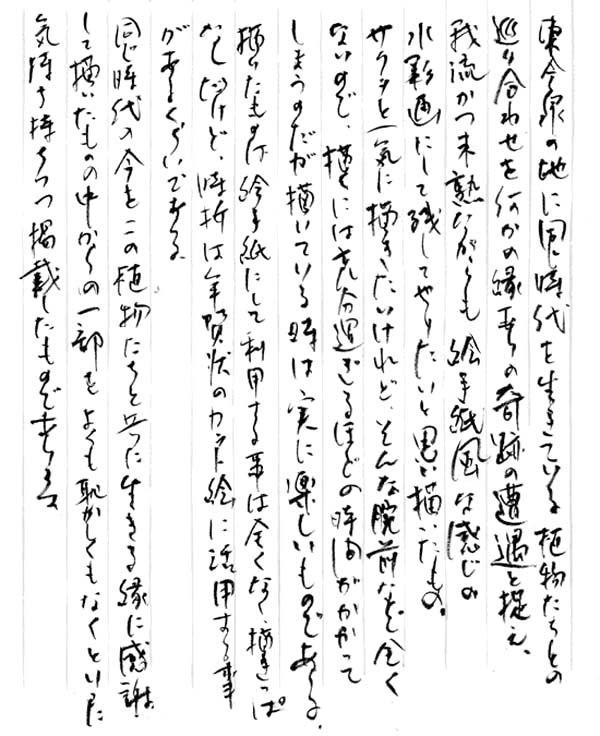 東今泉の地に同じ時代を生きている植物たちとの
巡り合わせを何かの縁、その奇跡の遭遇と捉え、
我流かつ未熟ながらも絵手紙風な感じの
水彩画にして残してやりたいと思い描いたもの。
サラッと一気に描きたいけれど、そんな腕前など全く
ないので、描くには充分過ぎるほどの時間がかかって
しまうのだが描いている時は実に楽しいものである。
描いたものは絵手紙にして利用する事は全くなく、描きっぱ
なしだけど、時折は年賀状のカット絵に活用する事
があるくらいである。
同じ時代の今をこの植物たちと共に生きる縁に感謝
して描いたものの中からの一部をよくも恥かしくもなくといった
気持ち持ちつつ掲載したものである